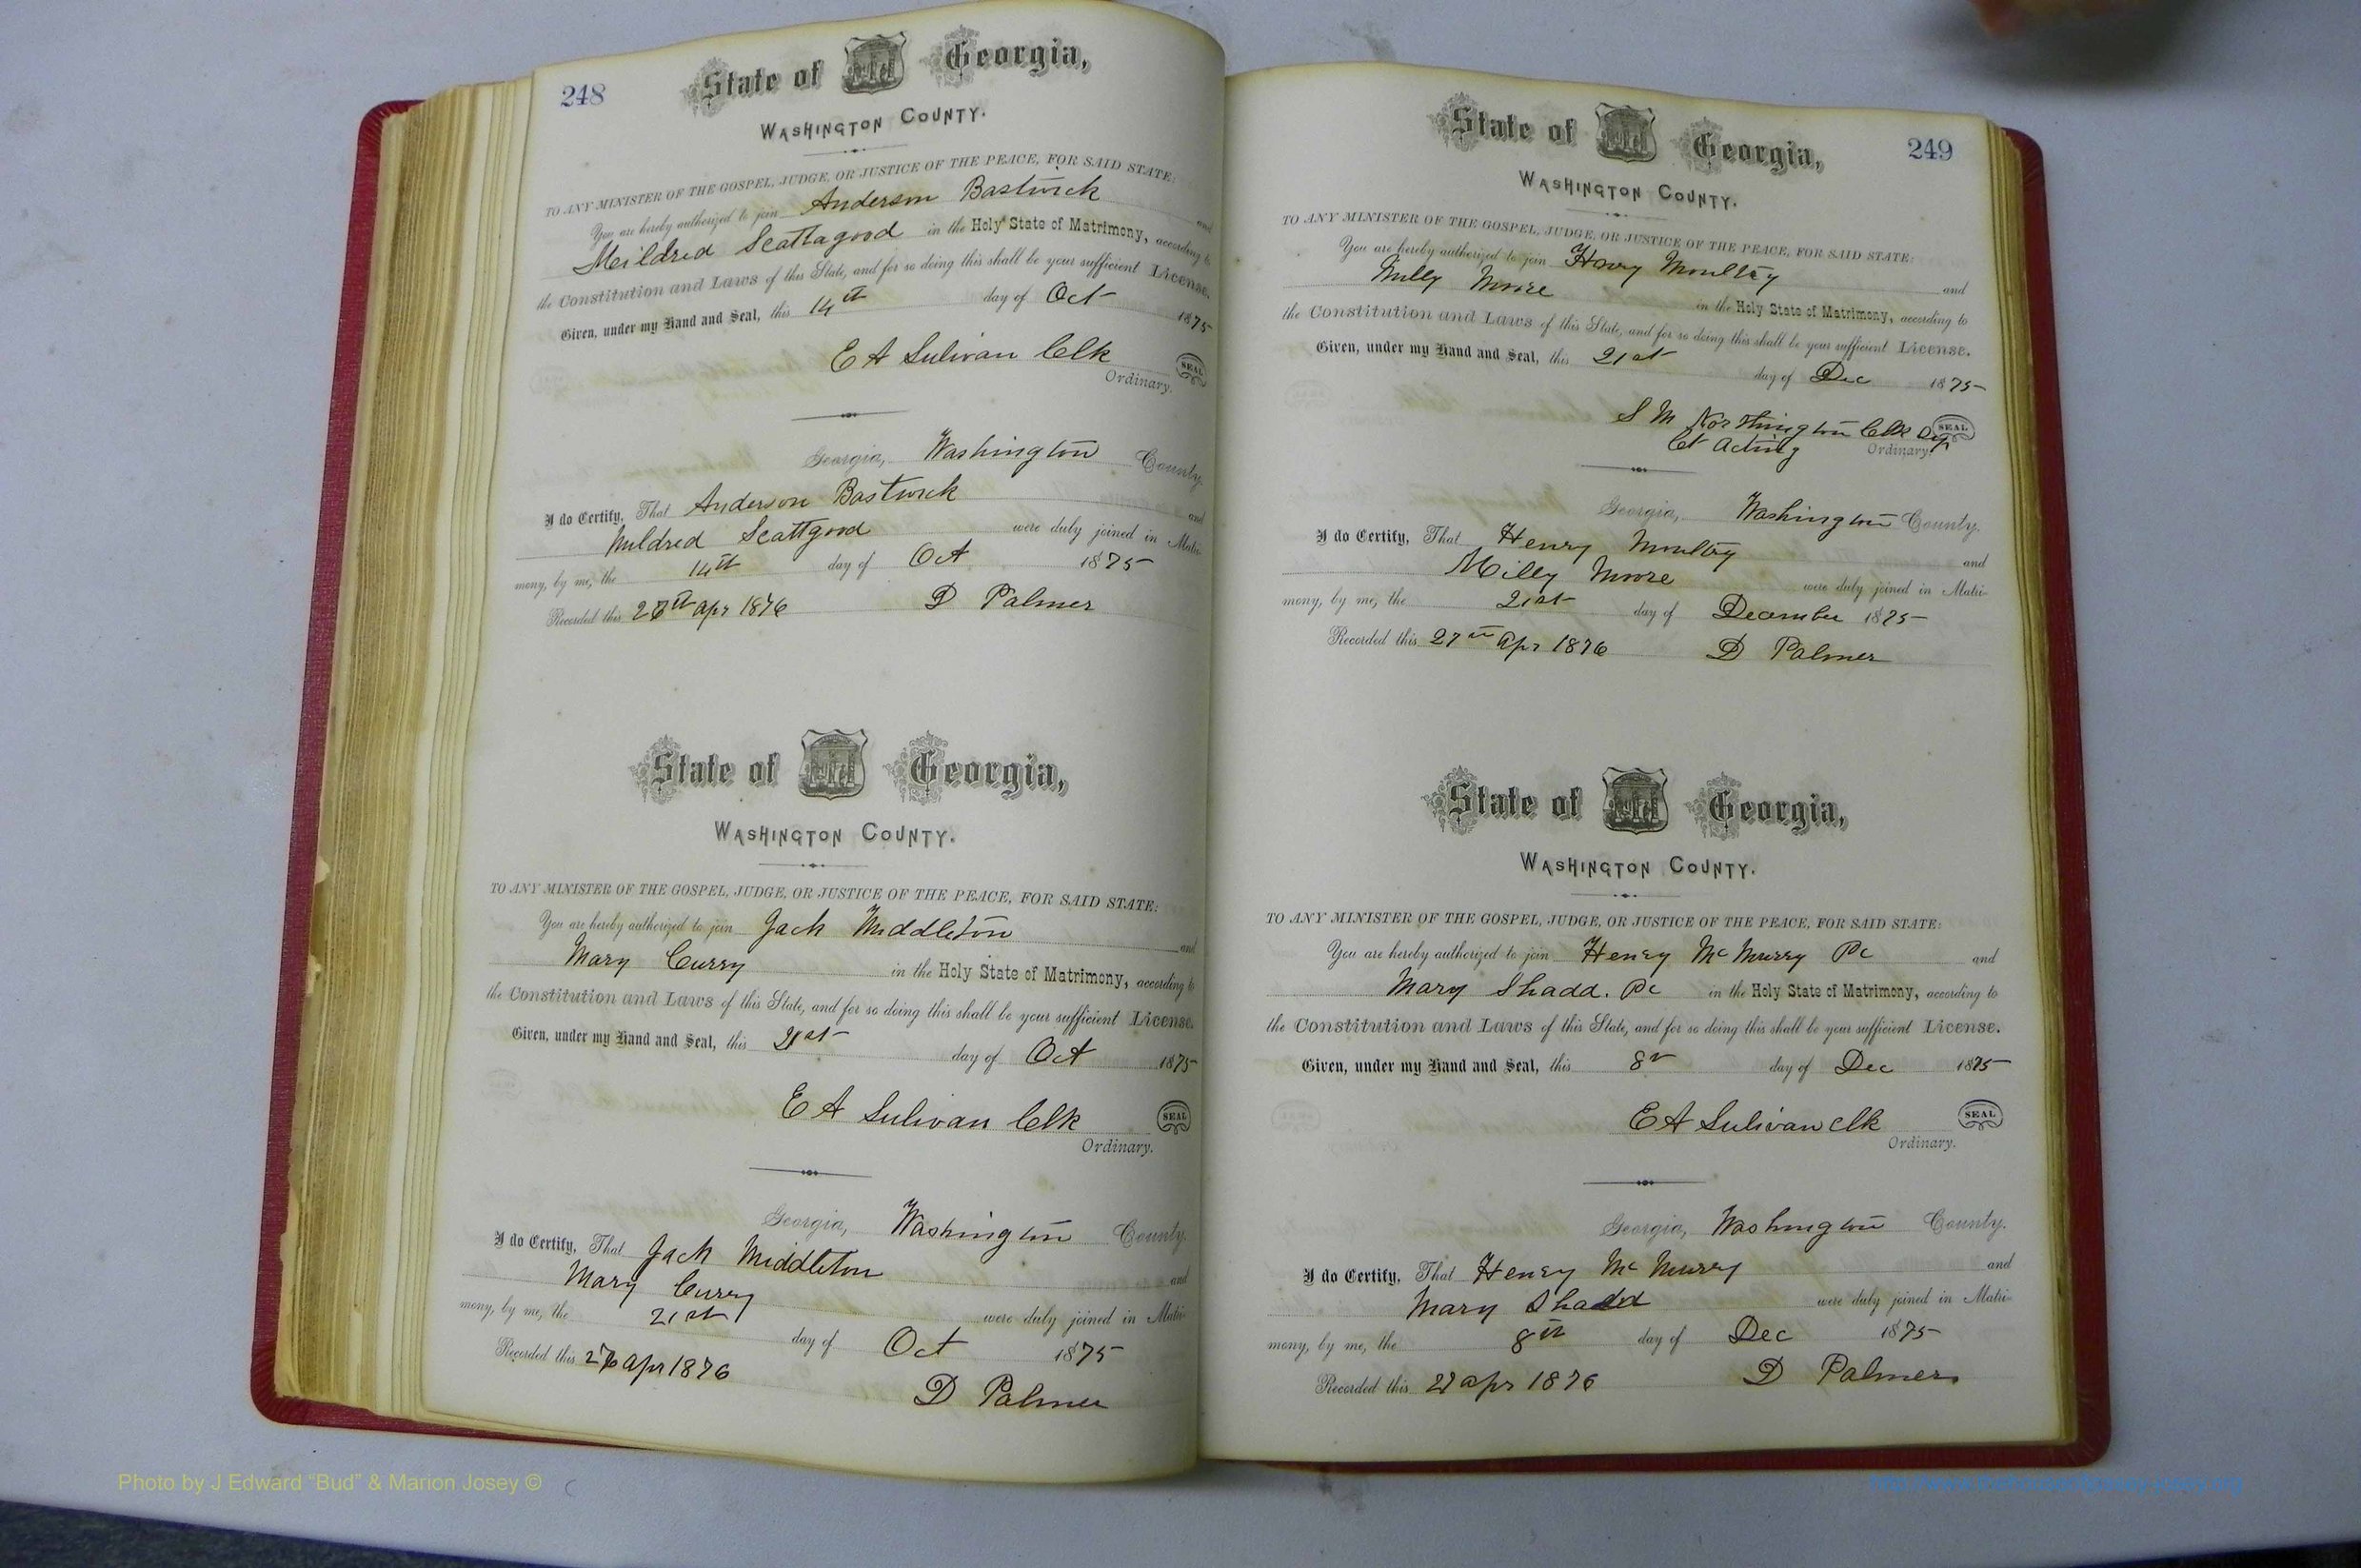 248
State of Georgia,
WASHINGTON COUNTY.
TO ANY MINISTER OF THE GOSPEL, JUDGE, OR JUSTICE OF THE PEACE, FOR SAID STATE:
You are hereby authorized to join Anderson Bastwick and
Meildred Scattagood in the Holy State of Matrimony, according to
the Constitution and Laws of this State, and for so doing this shall be your sufficient License.
Given, under my Hand and Seal, this 14th day of Oct 1875
E A Sulivan Clk SEAL
Ordinary.
Georgia, Washington County.
I do Certify, That Anderson Bastwick and
Mildred Scattgood were duly joined in Matri-
mony, by me, the 14th day of Oct 1875
Recorded this apr 1876 D Palmer
State of Georgia,
WASHINGTON COUNTY.
TO ANY MINISTER OF THE GOSPEL, JUDGE, OR JUSTICE OF THE PEACE, FOR SAID STATE:
You are hereby authorized to join Jack Middleton and
Mary Curry in the Holy State of Matrimony, according to
the Constitution and Laws of this State, and for so doing this shall be your sufficient License.
Given, under my Hand and Seal, this 21st day of Oct 1875
E A Sulivan Clk SEAL
Ordinary.
Georgia, Washington County.
I do Certify, That Jack Middleton and
Mary Curry were duly joined in Matri-
mony, by me, the 21st day of Oct 1875
Recorded this apr 1876 D Palmer
249
State of Georgia,
WASHINGTON COUNTY.
TO ANY MINISTER OF THE GOSPEL, JUDGE, OR JUSTICE OF THE PEACE, FOR SAID STATE:
You are hereby authorized to join Henry Moultry and
Milly Moore in the Holy State of Matrimony, according to
the Constitution and Laws of this State, and for so doing this shall be your sufficient License.
Given, under my Hand and Seal, this 21st day of Dec 1875
S M Northington Clk Sup SEAL
Ct Acting Ordinary.
Georgia, Washington County.
I do Certify, That Henry Moultry and
Milly Moore were duly joined in Matri-
mony, by me, the 21st day of December 1875
Recorded this 27th Apr 1876 D Palmer
State of Georgia,
WASHINGTON COUNTY.
TO ANY MINISTER OF THE GOSPEL, JUDGE, OR JUSTICE OF THE PEACE, FOR SAID STATE:
You are hereby authorized to join Henry McMurry Pc and
Mary Shadd. Pc in the Holy State of Matrimony, according to
the Constitution and Laws of this State, and for so doing this shall be your sufficient License.
Given, under my Hand and Seal, this 8th day of Dec 1875
E A Sulivan clk SEAL
Ordinary.
Georgia, Washington County.
I do Certify, That Henry McMurry and
Mary Shadd were duly joined in Matri-
mony, by me, the 8th day of Dec 1875
Recorded this 27 apr 1876 D Palmer
Photo by J Edward “Bud” & Marion Josey ©